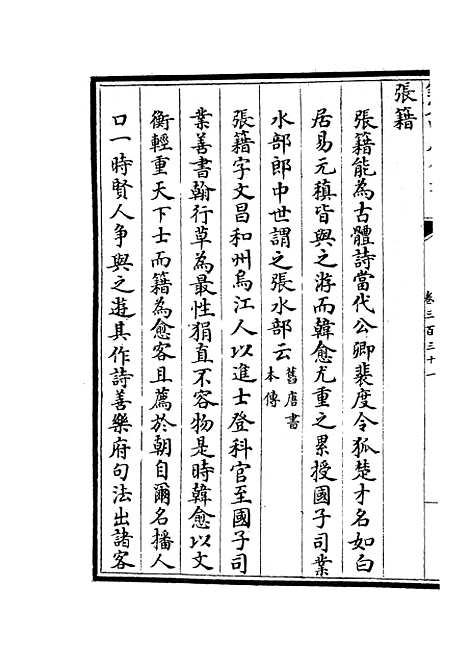 卷三百三十一
張籍
張籍能為古體詩當代公卿裴度令狐楚才名如白
居易元稹皆與之游而韓愈尤重之累授國子司業
水部郎中世謂之張水部云舊唐書
本傳
張籍字文昌和州烏江人以進士登科官至國子司
業善書翰行草為最性狷直不容物是時韓愈以文
衡輕重天下士而籍為愈客且薦於朝自爾名播人
口一時賢人争與之遊其作詩善樂府句法出諸客